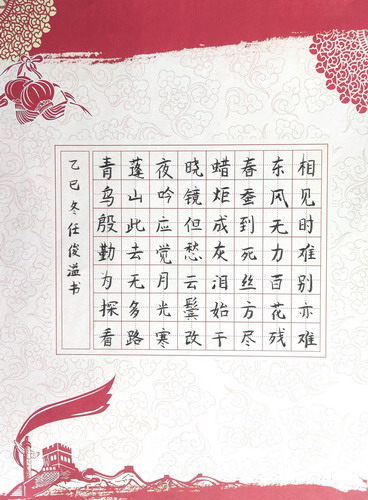 相见时难别亦难
东风无力百花残
春蚕到死丝方尽
蜡炬成灰泪始干
晓镜但愁云鬓改
夜吟应觉月光寒
蓬山此去无多路
青鸟殷勤为探看
乙巳冬任俊溢书